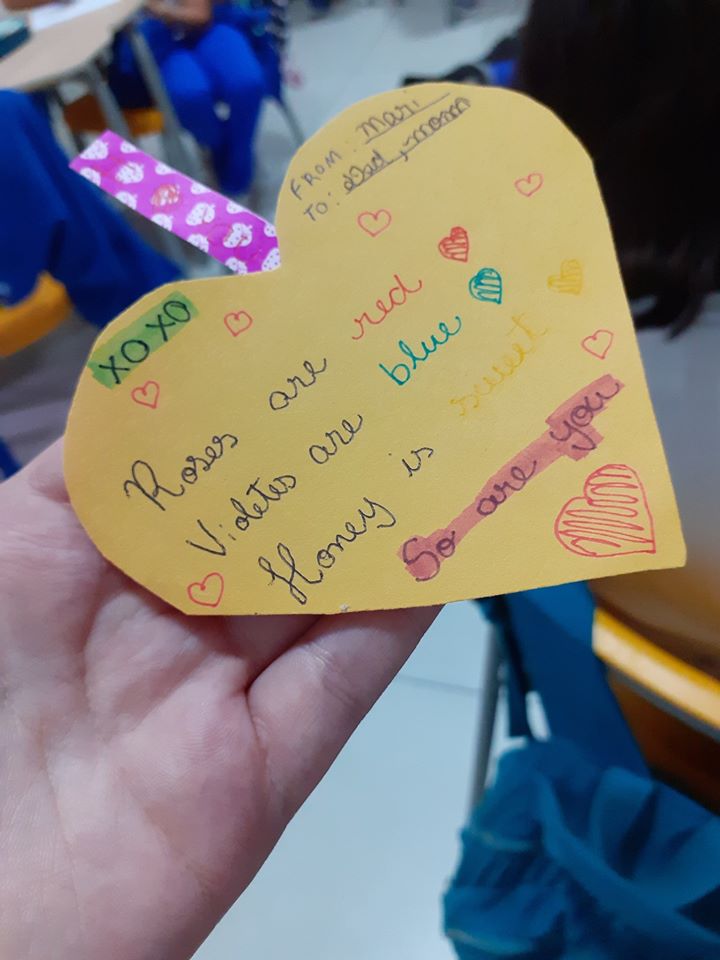 FROM: Mari
TO: Dad, mom
XOXO
Roses are red
Violetes are blue
Honey is sweet
So are you